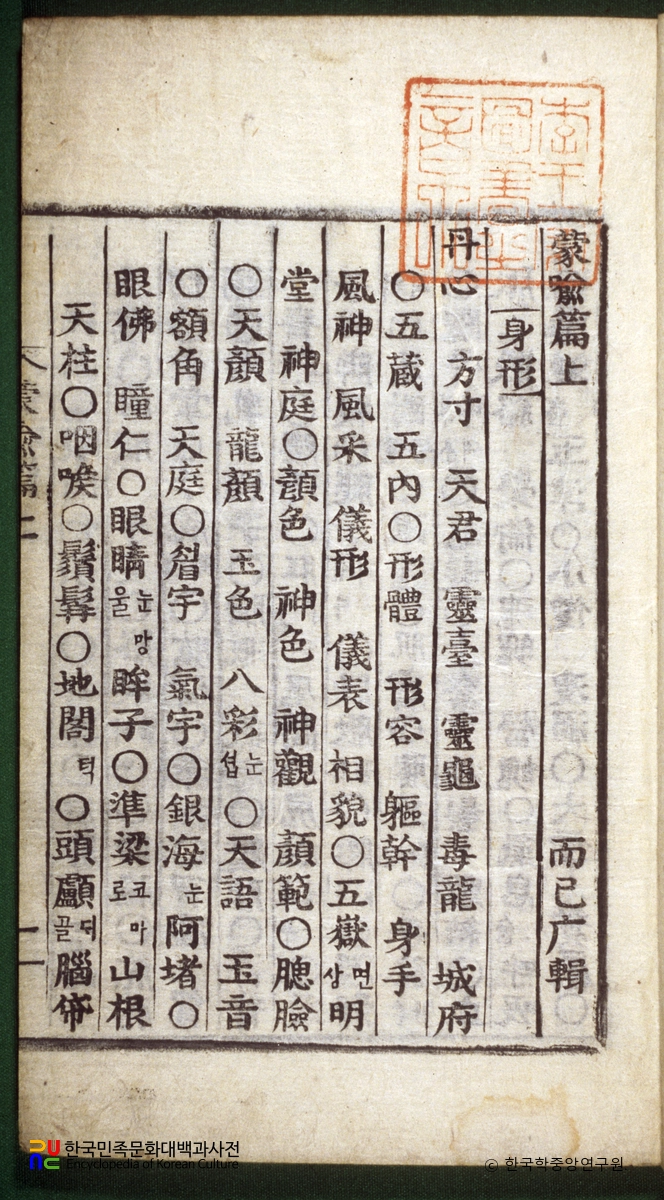 蒙喩篇上 而已广輯
身形
丹心 方寸 天君 靈臺 靈龜 毒龍 城府
〇五蔵 五內〇形體 形容 軀幹 身手
風神 風采 儀形 儀表 相貌〇五嶽면상明
堂 神庭〇顔色 神色 神觀 顔範〇腮臉
〇天顔 龍顔 玉色 八彩눈섭〇天語 玉音
〇額角 天庭〇眉宇 氣宇〇銀海눈阿堵〇
眼佛 瞳仁〇眼睛눈망울眸子〇準梁코마로山根
天柱〇咽喉〇鬚髥〇地閣턱〇頭顱골腦帒
蒙喩篇 二
한국민족문화대백과사전
Encyclopedia of Korean Culture
© 한국학중앙연구원